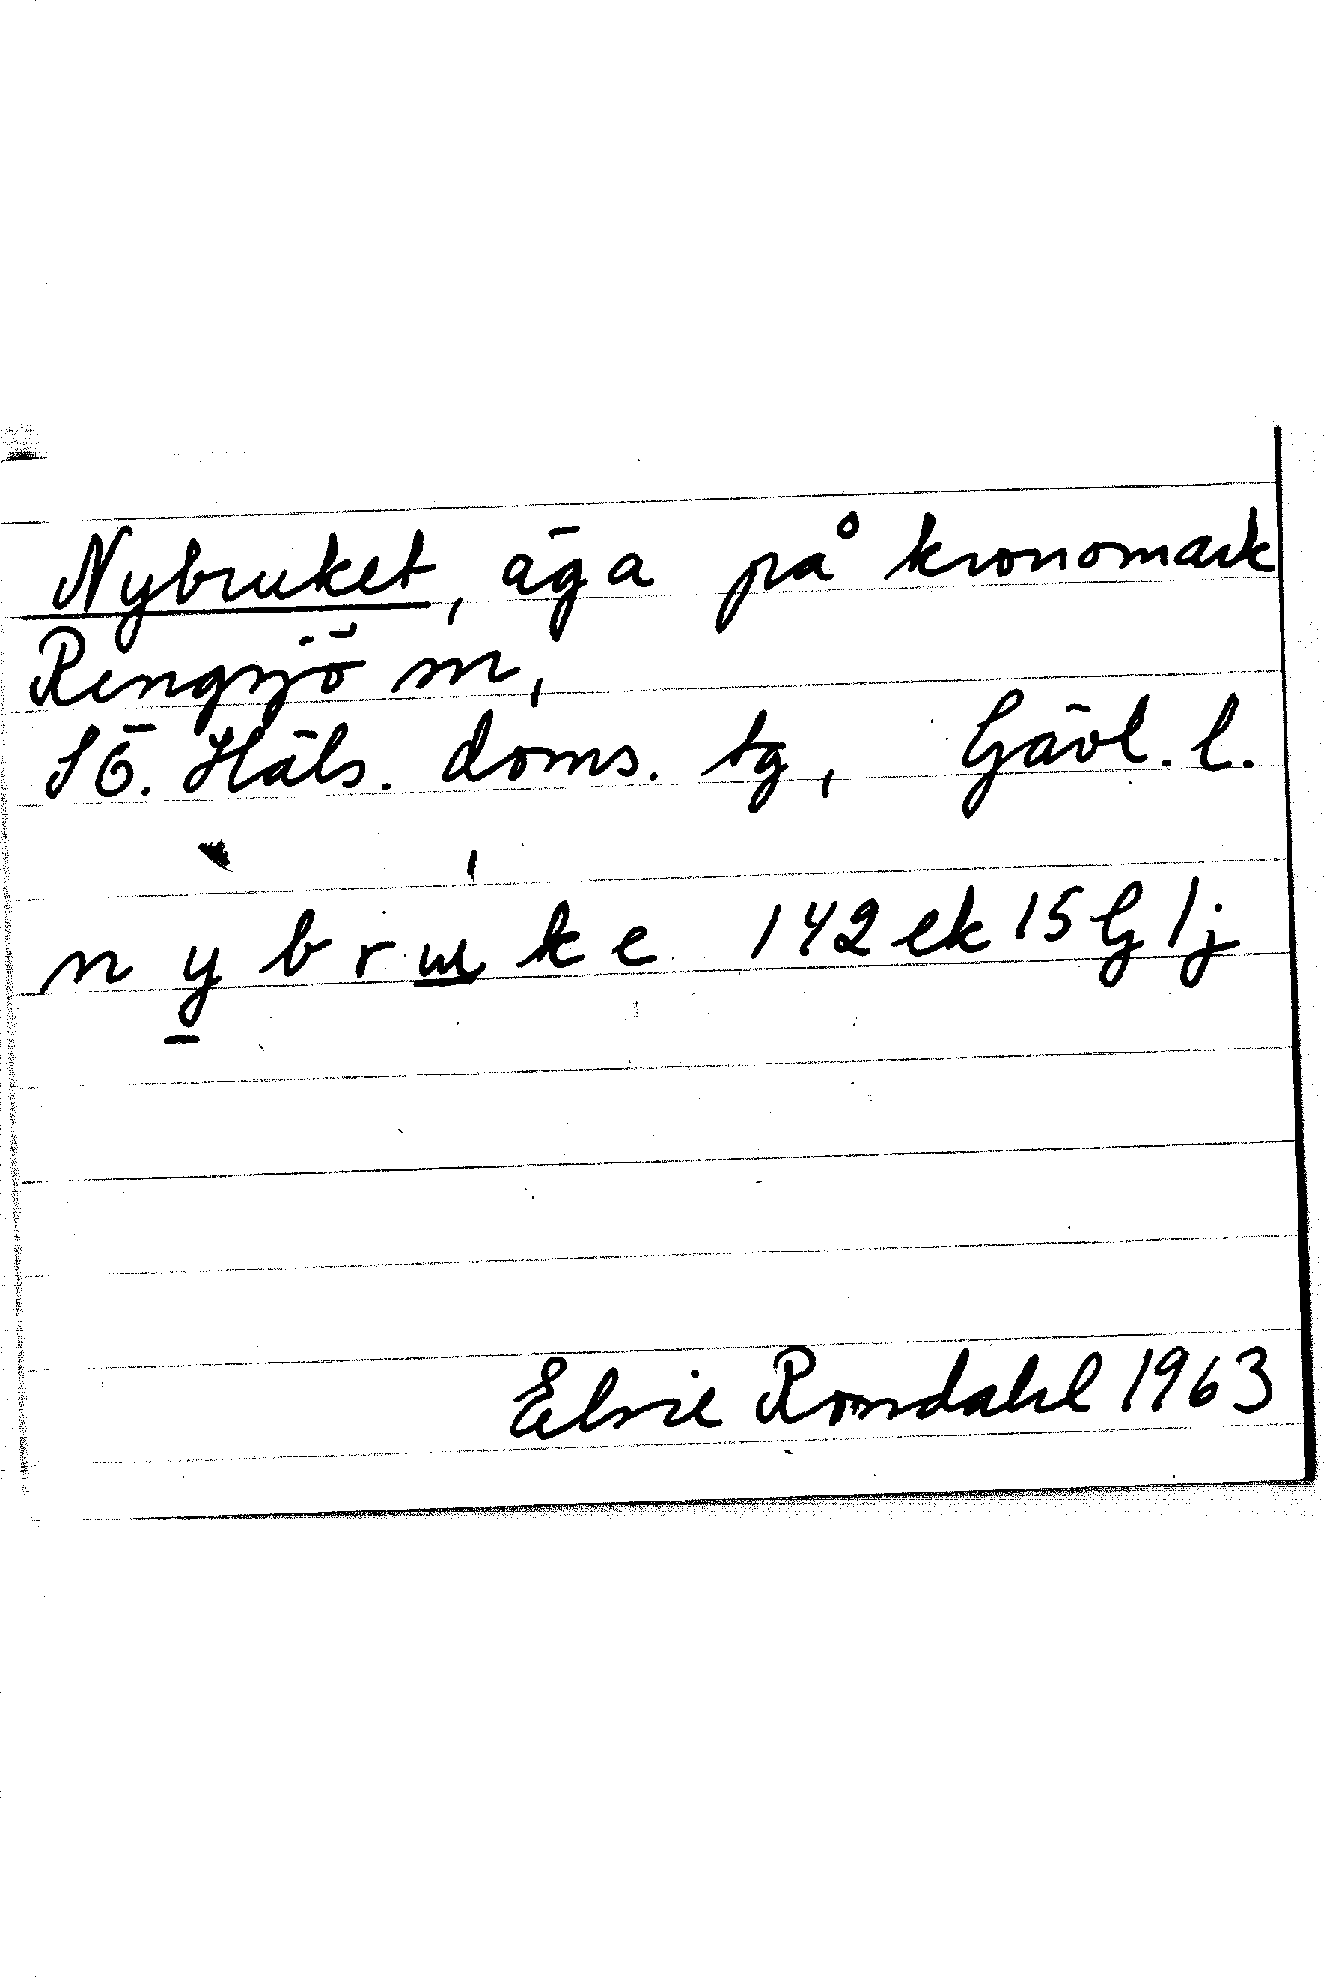 Nybruket, äga på kronomark
Rengsjö sn,
SÖ. Häls. doms. tg, Gävl. l.
nybruke 142 ek 15 G lj
Elsie Romdahl 1963